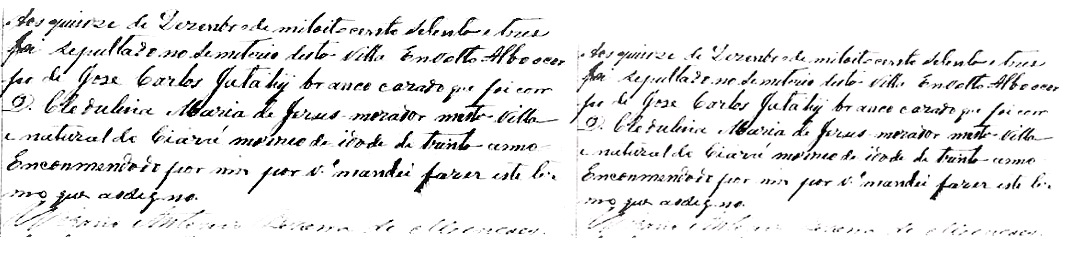 Aos quinze de Dezembro de mil oito cento setenta e tres
foi sepultado no semiterio desta Villa Envolto Alb o cor
po de Jose Carlos Jatahy branco cazado que foi com
D. Cledulina Maria de Jesus morador nesta Villa
e natural do Ciará morreo de idade de trinta annos
Encommendado por mim por vᵉ mandei fazer este ter
mo que assigno.
Antonio de Menezes
Aos quinze de Dezembro de mil oito cento setenta e tres
foi sepultado no semiterio desta Villa Envolto Alb o cor
po de Jose Carlos Jatahy branco cazado que foi com
D. Cledulina Maria de Jesus morador nesta Villa
e natural do Ciará morreo de idade de trinta annos
Encommendado por mim por vᵉ mandei fazer este ter
mo que assigno.
Antonio de Menezes